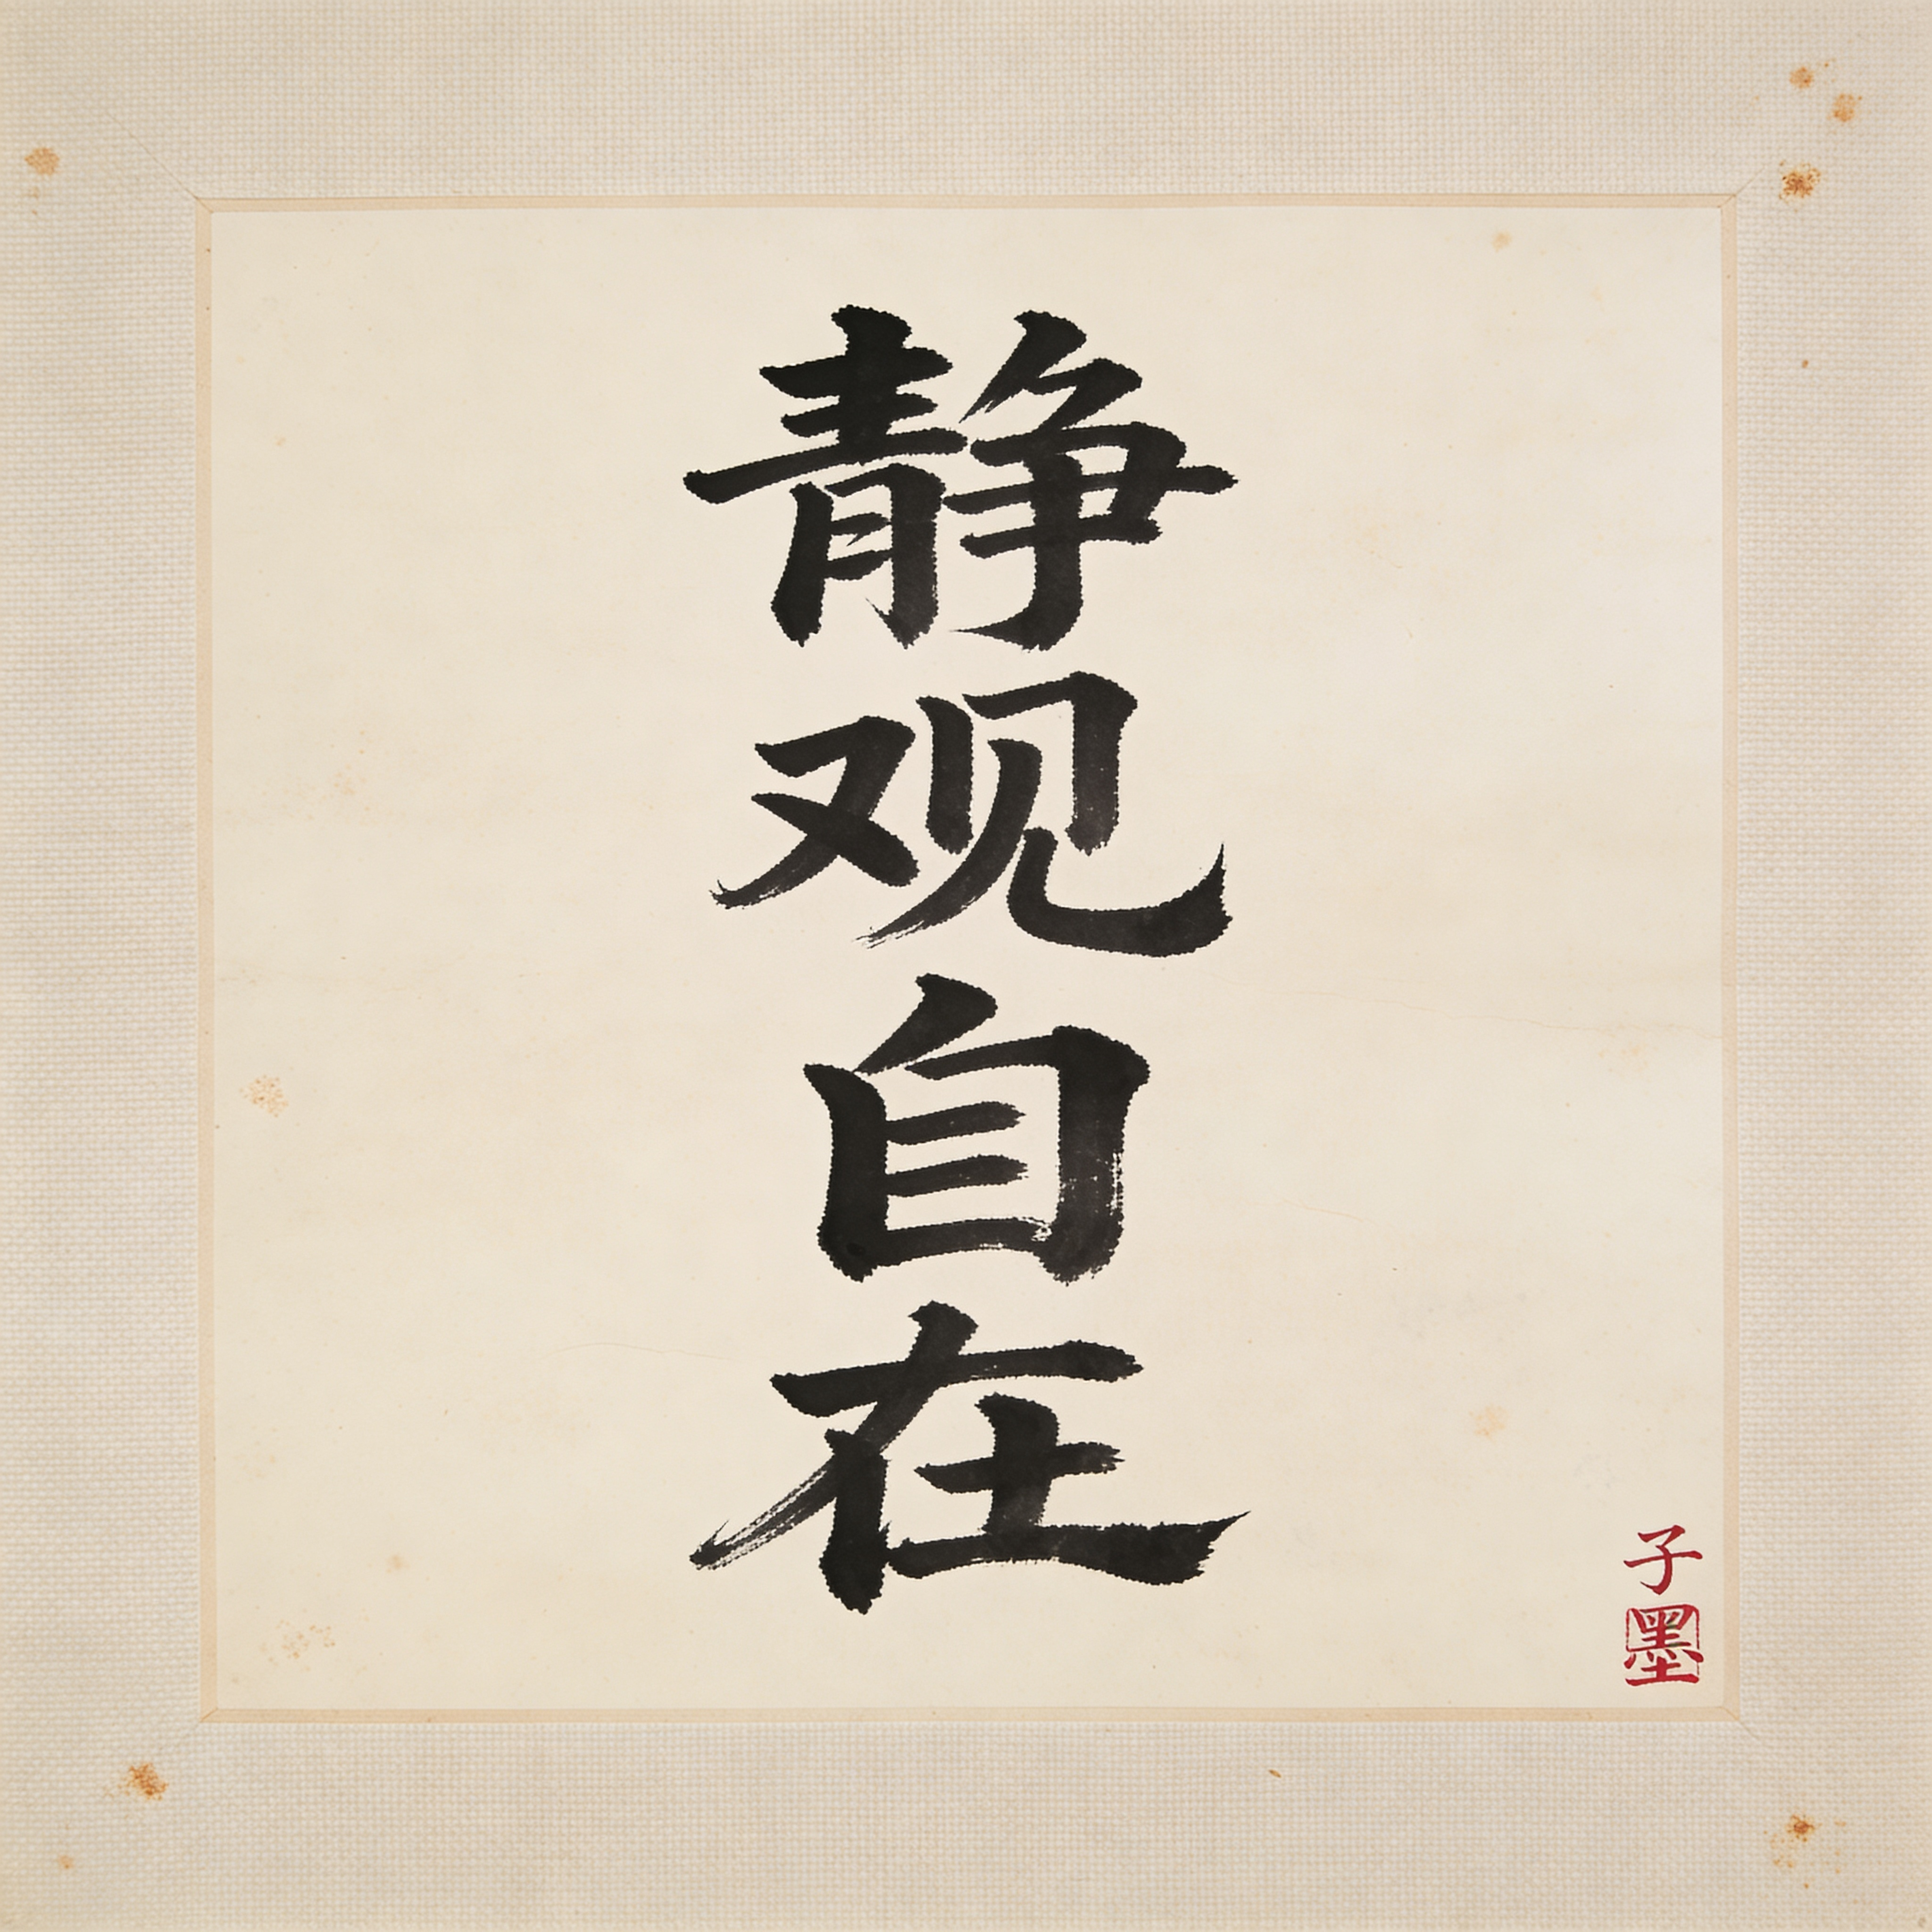 静观自在
子墨